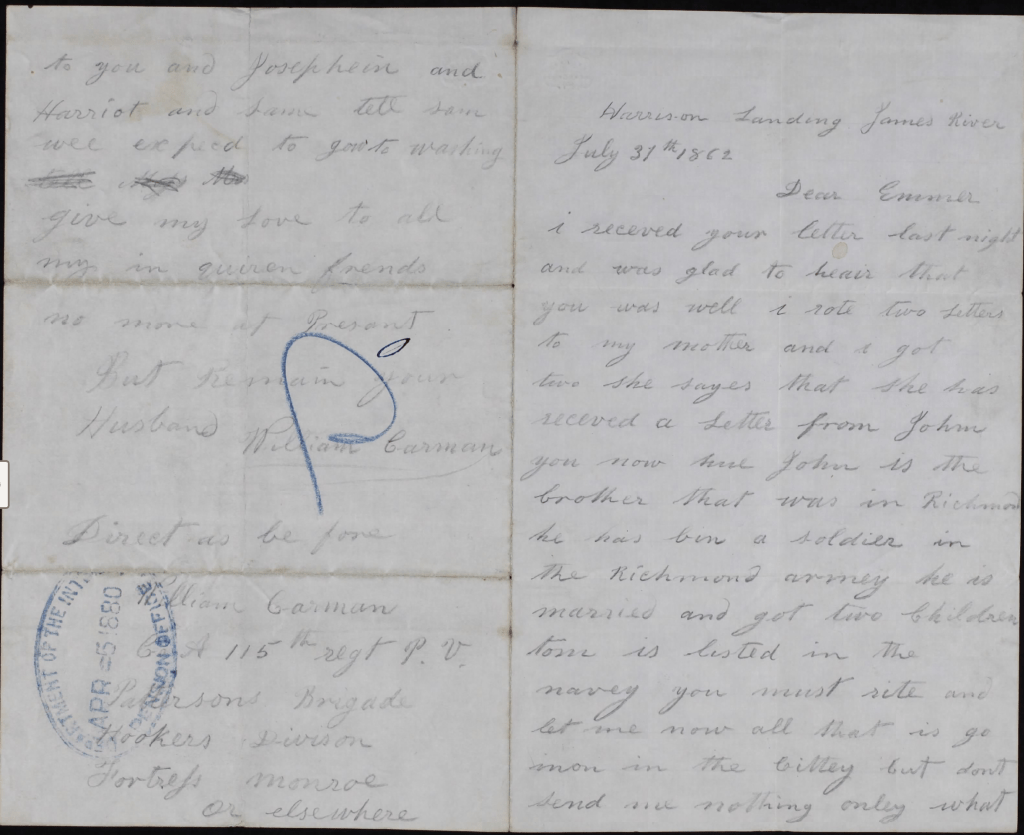 Harrison Landing James River
July 31th 1862
Dear Emmer
i receved your letter last night
and was glad to heair that
you was well i rote two letters
to my mother and i got
two she sayes that she has
receved a letter from John
you now hue John is the
brother that was in Richmond
he has bin a soldier in
the Richmond armey he is
married and got two Children
tom is listed in the
navey you must rite and
let me now all that is go
inon in the Cittey but dont
send me nothing onley what
to you and Josephein and
Harriot and Sam tell sam
wee expecd to gowto washing
give my love to all
my in quiren frends
no more at Presant
But Remain your
Husband William Carman
Direct as be fore
William Carman
Co A 115th regt P. V.
Patersons Brigade
Hookers Divison
Fortress monroe
or elsewhere
DEPARTMENT OF THE INT.
APR 5 1880
PENSION OFFICE